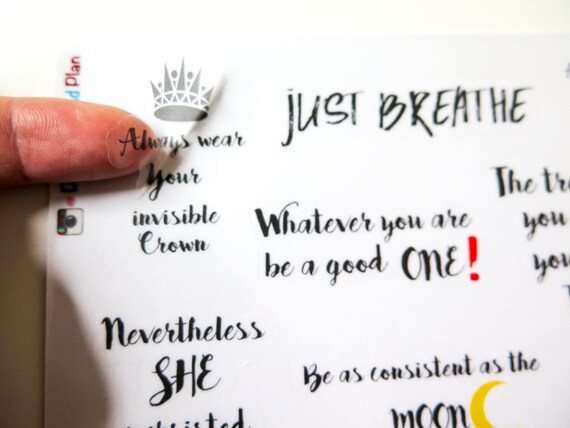 d Plan
Always wear
Your
invisible
Crown
JUST BREATHE
Whatever you are
be a good ONE!
The
you
you
Nevertheless
SHE
Be as consistent as the
moon